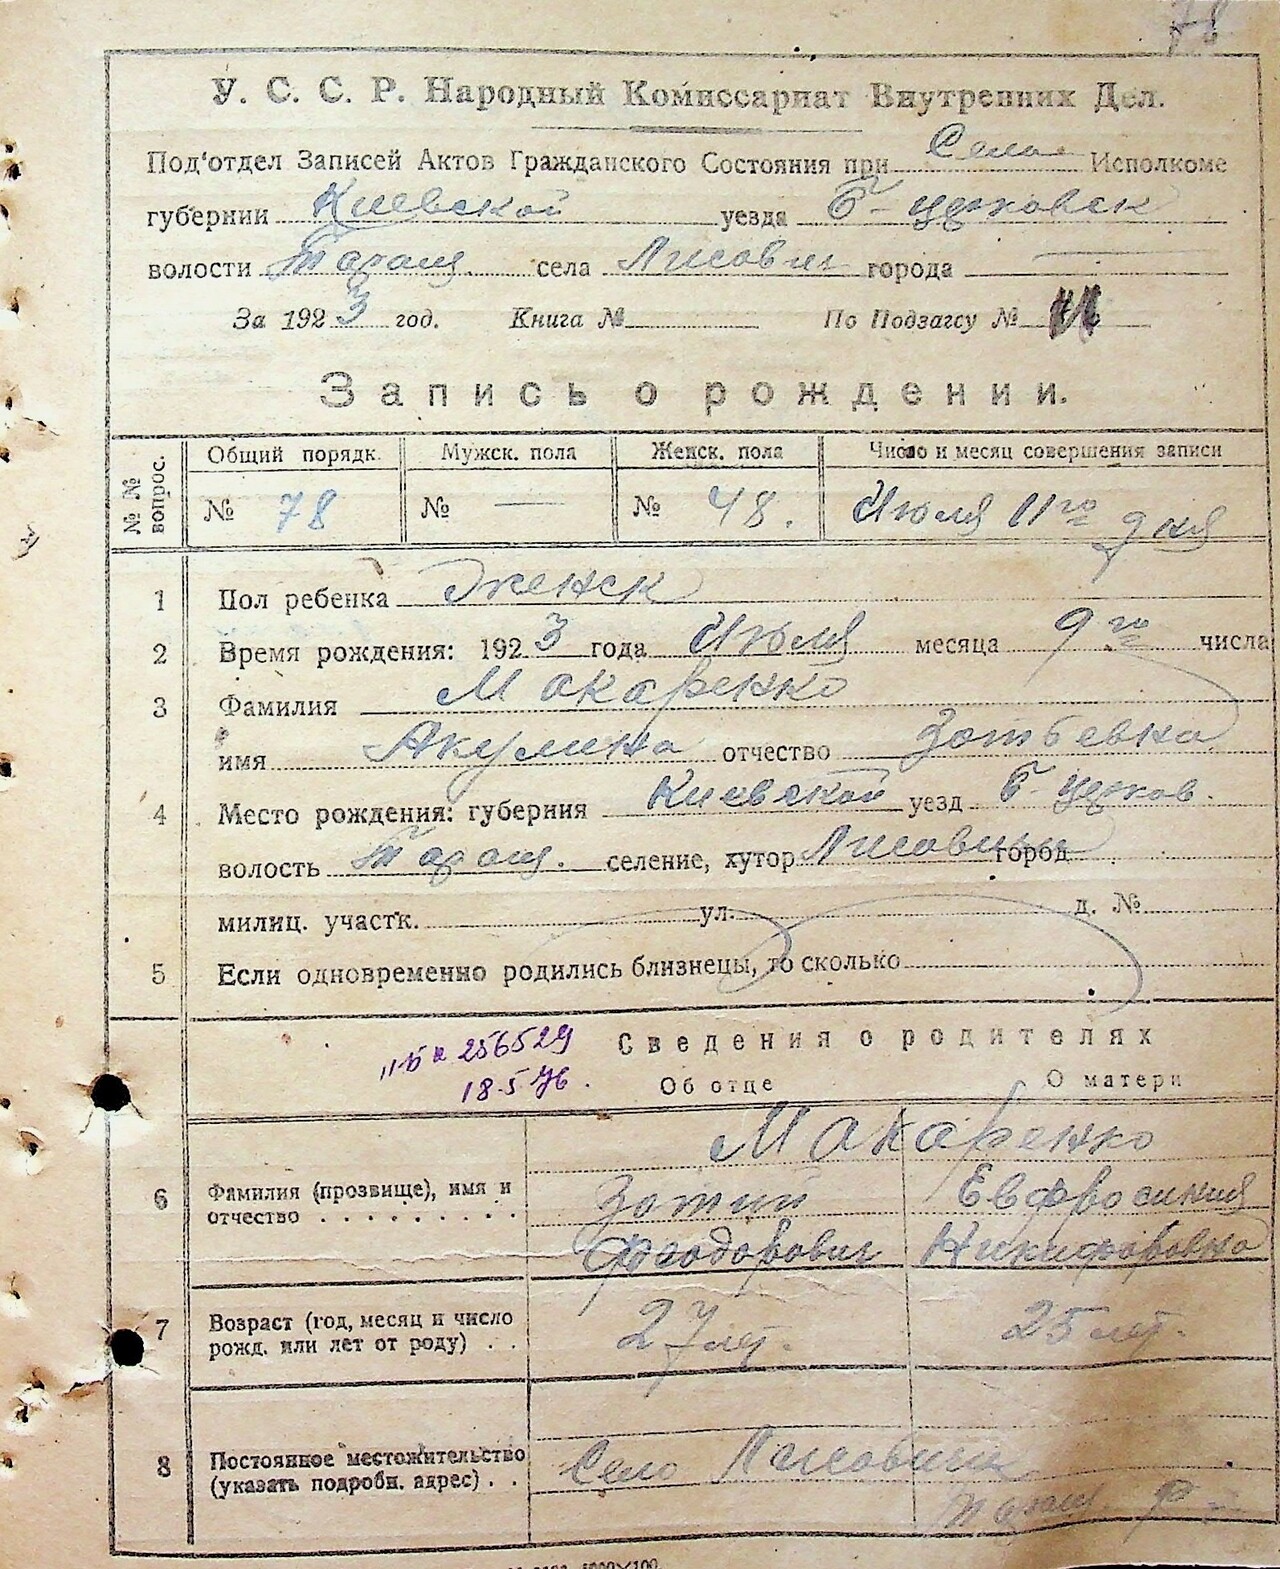 78
У. С. С. Р. Народный Комиссариат Внутренних Дел.
Под'отдел Записей Актов Гражданского Состояния при Село Исполкоме
губернии Киевской уезда Б-церковск
волости Таращ. села Лисович города —
За 1923 год. Книга № По Подзагсу №
Запись о рождении.
№ № вопрос.
Общий порядк. Мужск. пола Женск. пола Число и месяц совершения записи
№ 78 № — № 48. Июля 11го дня
1 Пол ребенка Женск
2 Время рождения: 1923 года Июля месяца 9го числа
3 Фамилия Макаренко
имя Акулина отчество Зотьевна
4 Место рождения: губерния Киевской уезд Б-церков.
волость Таращ. селение, хутор Лисовичи город
милиц. участк. ул. д. №
5 Если одновременно родились близнецы, то сколько
"Б" 256529 Сведения о родителях
18.5.76. Об отце О матери
Макаренко
6 Фамилия (прозвище), имя и Зотий Евфросиния
отчество . . . . . . . . . Феодорович Никифоровна
7 Возраст (год, месяц и число 27 лет. 25 лет.
рожд. или лет от роду) . .
8 Постоянное местожительство Село Лисовичи
(указать подробн. адрес) . . Таращ. Р-